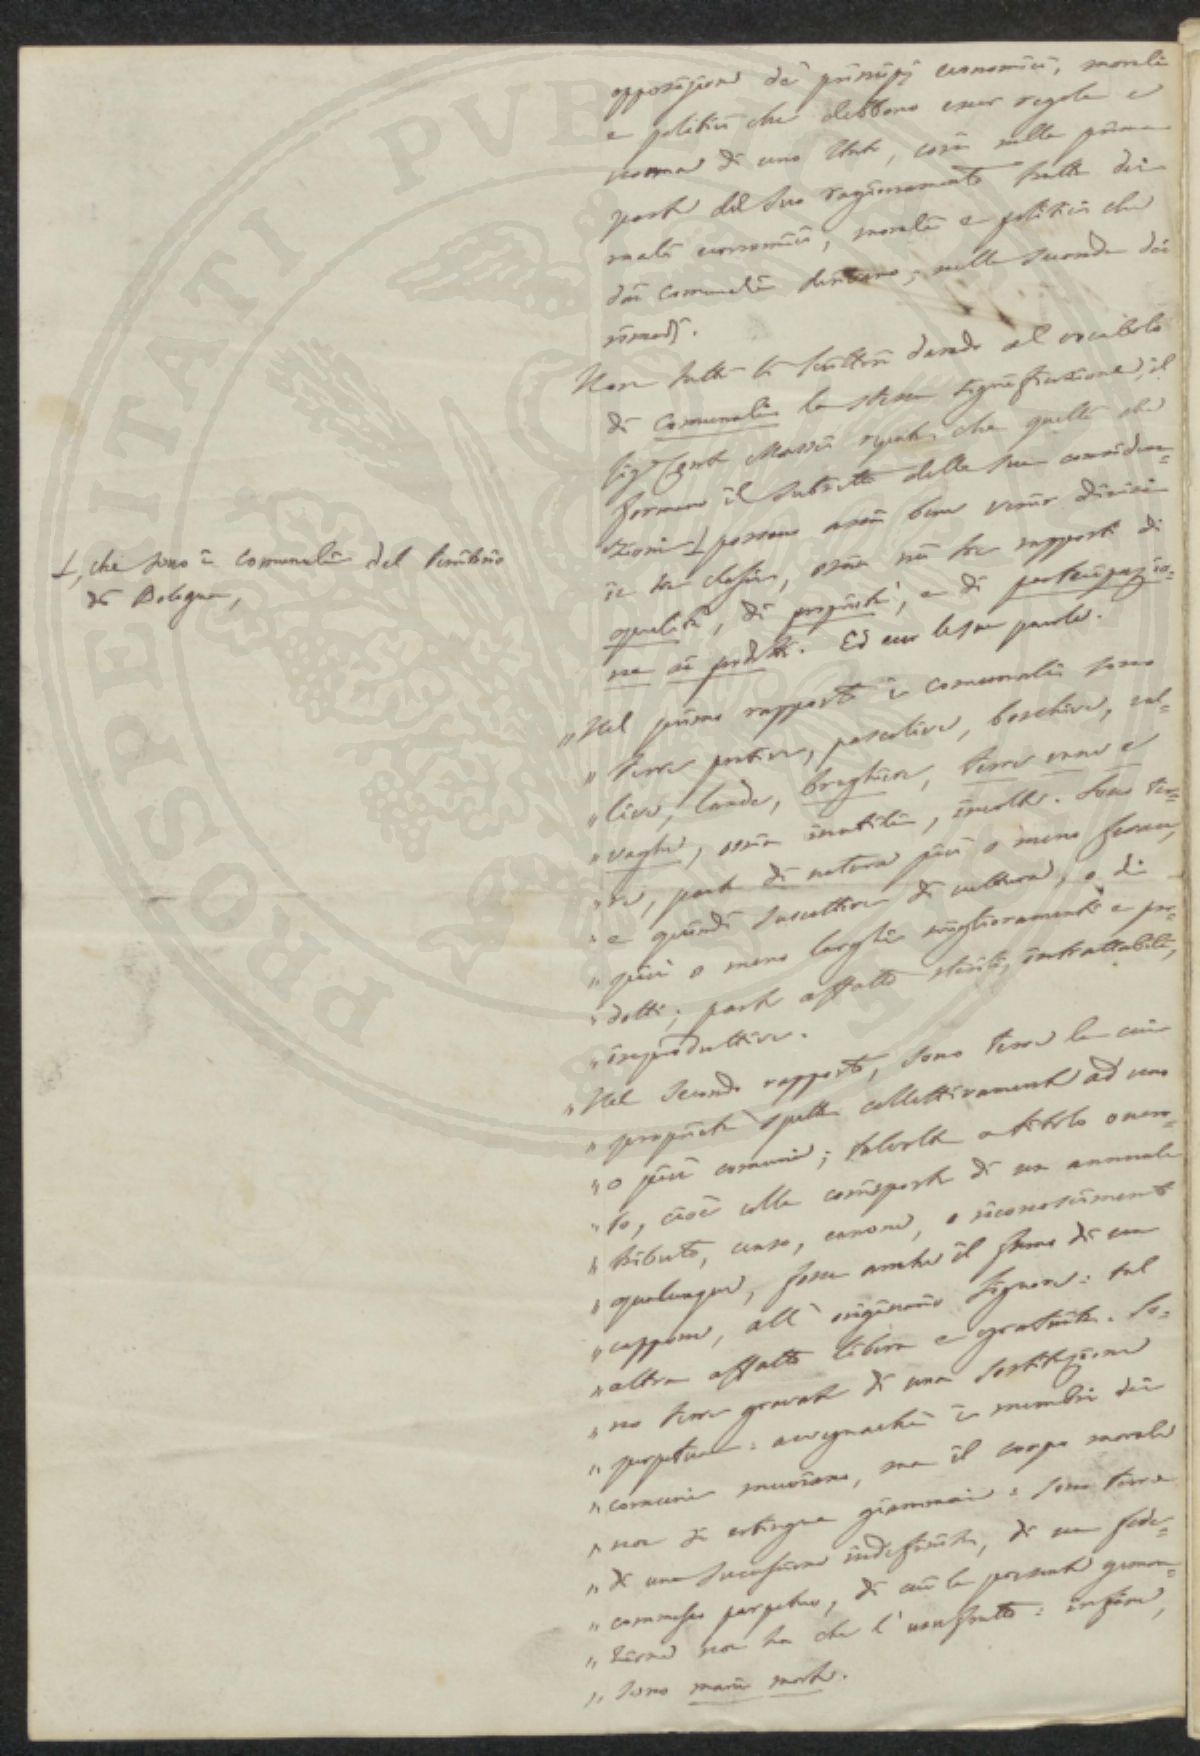 opposizione dei principj economici, morali
e politici che debbono esser regola e
norma di uno Stato, così nella prima
parte del suo ragionamento tratta dei
mali economici, morali e politici che
dai comunali derivano; nella seconda dei
rimedj.
Non tutti li scrittori dando al vocabolo
di comunali la stessa significazione, il
Sig.r Conte Massei reputa che quelli che
formano il subietto delle sue considera=
zioni ⊥ possano assai bene venir divisi
in tre classi, ossia nei tre rapporti di
qualità, di proprietà, e di partecipazio=
ne ai prodotti. Ed ecco le sue parole.
⊥, che sono i comunali del territorio
di Bologna,
„ Nel primo rapporto i comunali sono
„ terre prative, pascolive, boschive, val=
„ live, lande, braghiere, terre vane e
„ vaghe, ossia inutili, incolte. Sono ter=
„ re, parte di natura più o meno feraci,
„ e quindi suscettive di cultura, o di
„ più o meno larghi miglioramenti e pro=
„ dotti; parte affatto sterili, intrattabili,
„ improduttive.
„ Nel secondo rapporto, sono terre la cui
„ proprietà spetta collettivamente ad uno
„ o più comuni; talvolta a titolo onero=
„ so, cioè colla corrisposta di un annuale
„ tributo, censo, canone, o riconoscimento
„ qualunque, fosse anche il fumo di un
„ cappone, all'originario Signore: tal
„ altra affatto libera e gratuita. So=
„ no terre gravate di una sostituzione
„ perpetua: avvegnachè i membri dei
„ comuni muoiano, ma il corpo morale
„ non si estingue giammai: sono terre
„ di una successione indefinita, di un fide=
„ commesso perpetuo, di cui la presente genera=
„ zione non ha che l'usufrutto: infine,
„ sono mani morte.